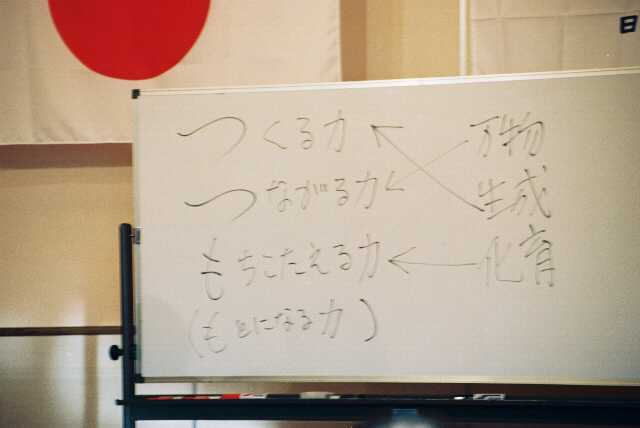 日
つくる力 万物
つながる力 生成
もちこたえる力 化育
(もとになる力)